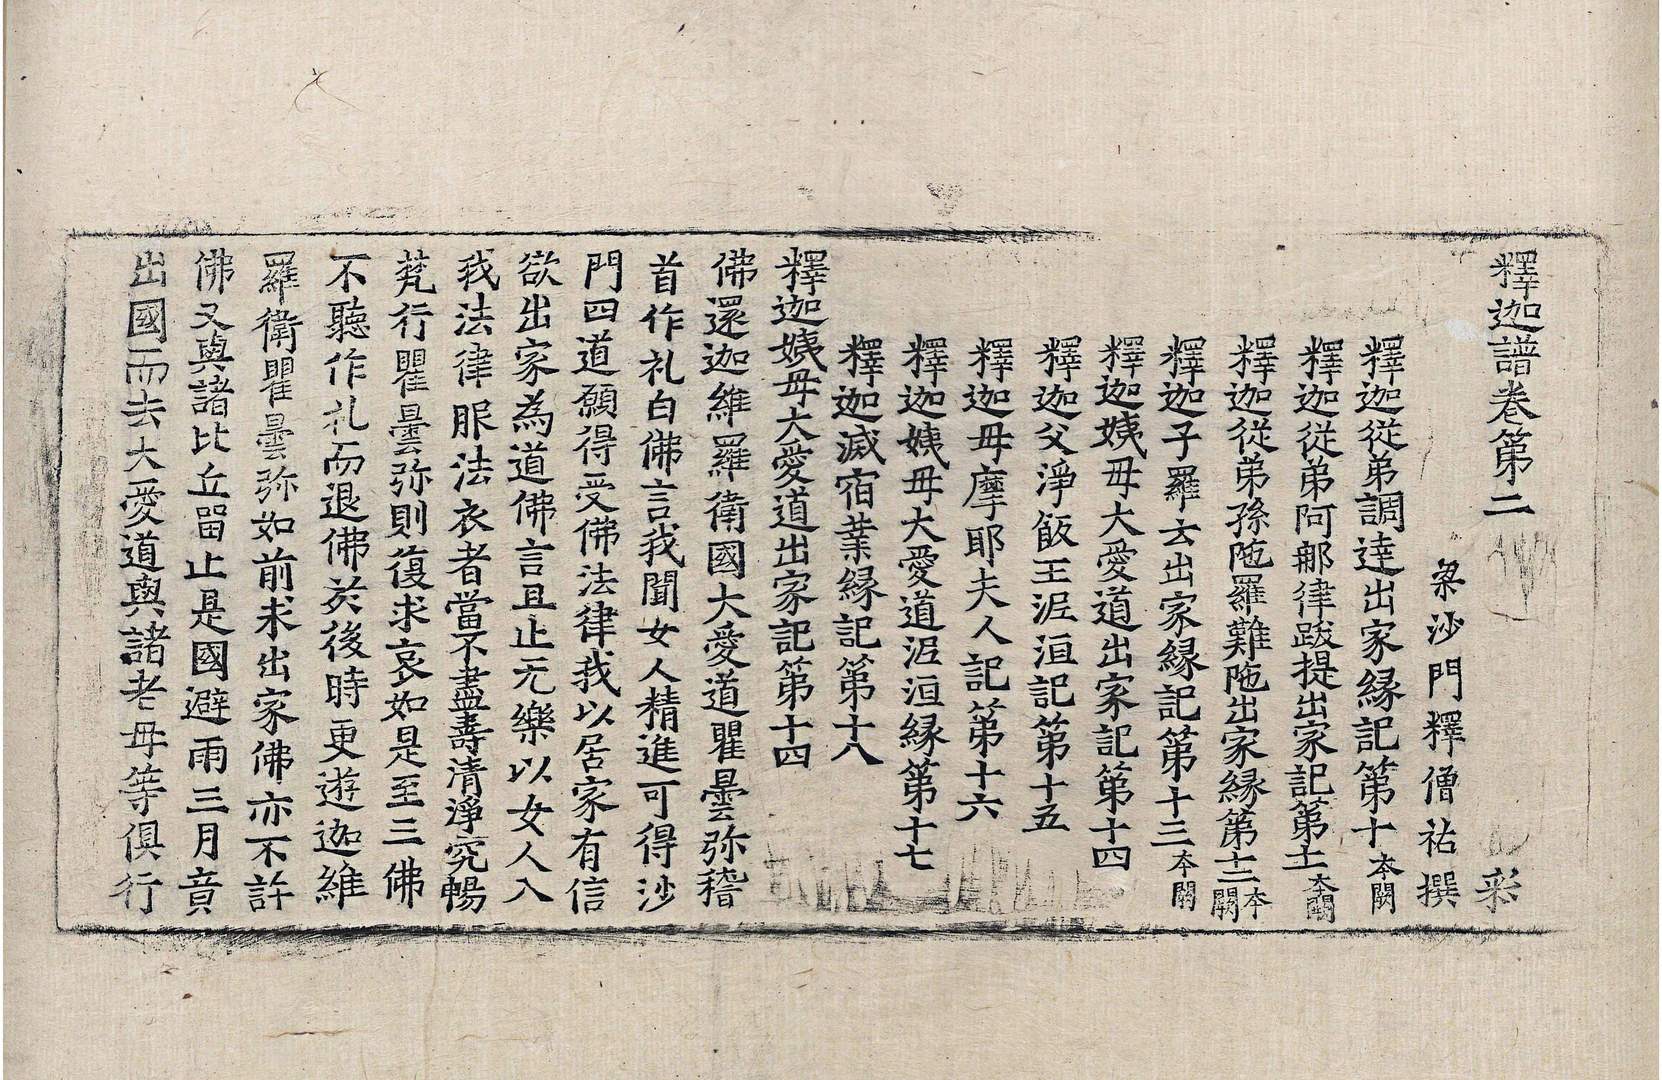 釋迦譜卷第二 彩
梁沙門釋僧祐撰
釋迦從弟調達出家緣記第十本闕
釋迦從弟阿那律跋提出家記第十一本闕
釋迦從弟孫陁羅難陁出家緣第十二本闕
釋迦子羅云出家緣記第十三本闕
釋迦姨母大愛道出家記第十四
釋迦父淨飯王泥洹記第十五
釋迦母摩耶夫人記第十六
釋迦姨母大愛道泥洹緣第十七
釋迦滅宿業緣記第十八
釋迦姨母大愛道出家記第十四
佛還迦維羅衛國大愛道瞿曇弥稽
首作礼白佛言我聞女人精進可得沙
門四道願得受佛法律我以居家有信
欲出家為道佛言且止无樂以女人入
我法律服法衣者當不盡壽清淨究暢
梵行瞿曇弥則復求哀如是至三佛
不聽作礼而退佛於後時更遊迦維
羅衛瞿曇弥如前求出家佛亦不許
佛又與諸比丘留止是國避雨三月竟
出國而去大愛道與諸老母等俱行